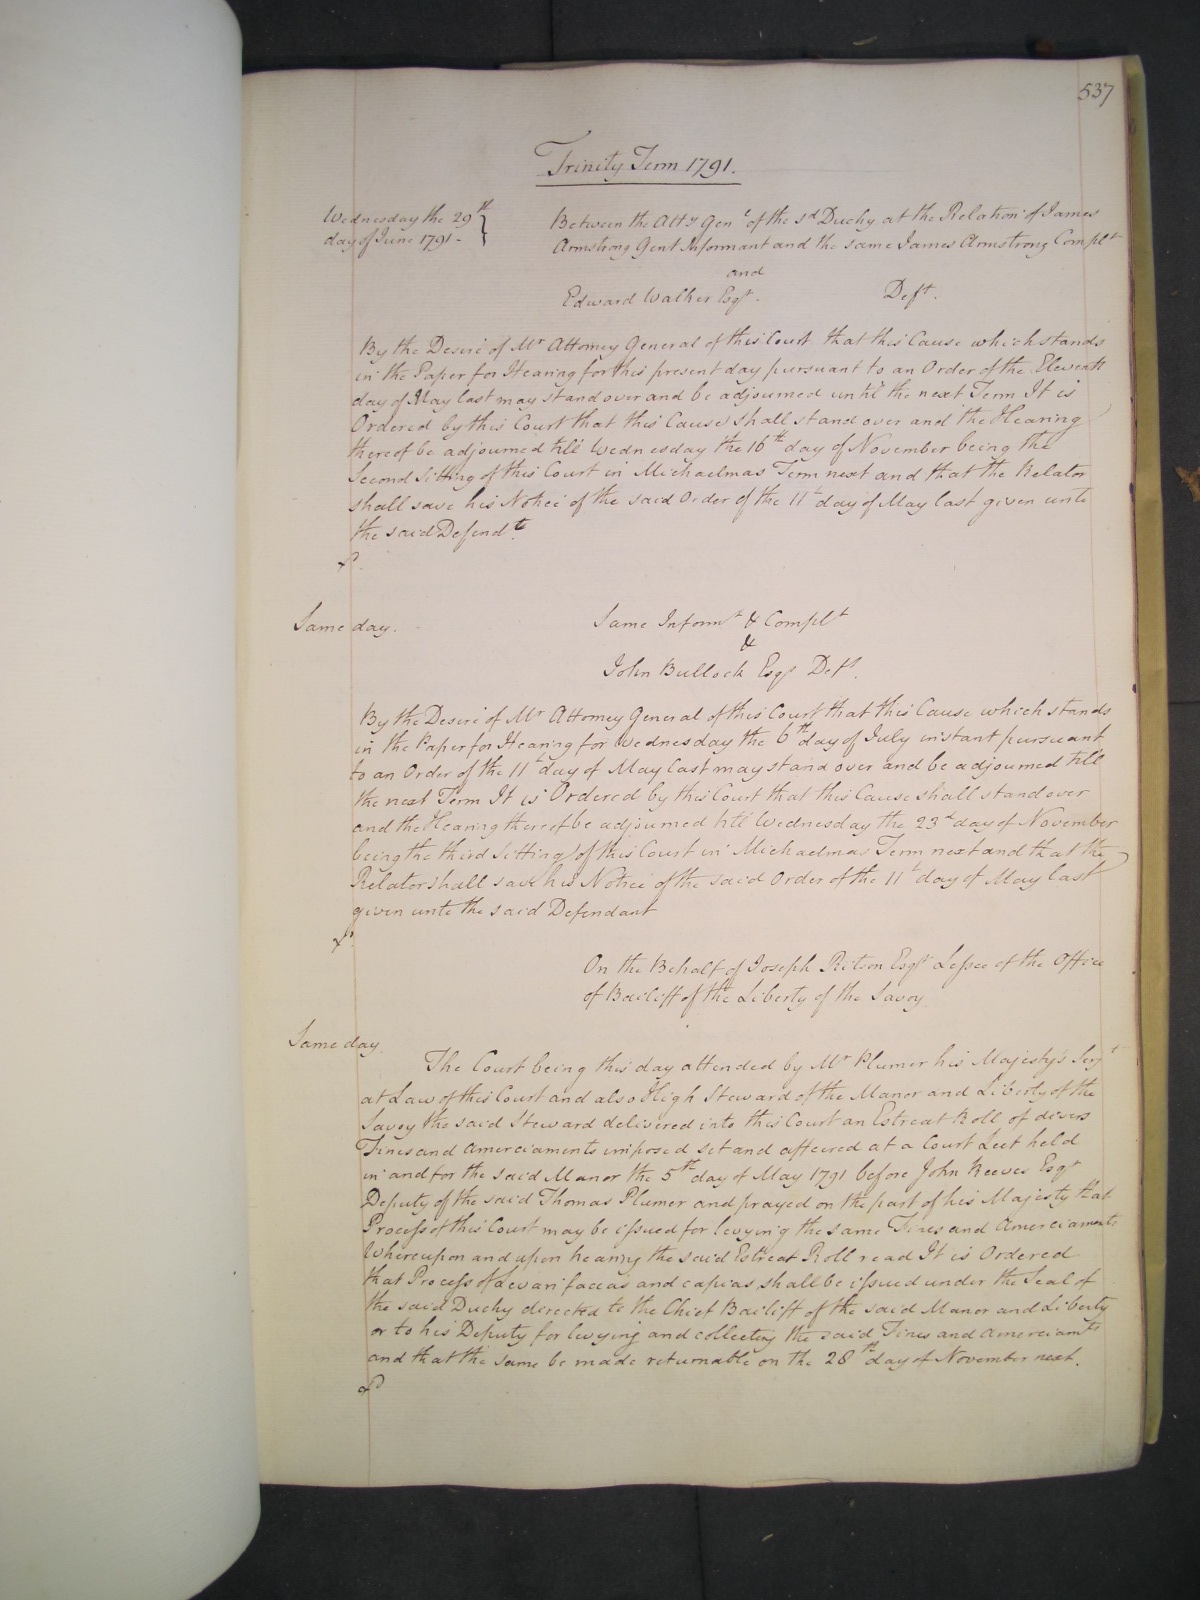 537
Trinity Term 1791.
Wednesday the 29th
day of June 1791 -
Between the Atty Genl of the sd Duchy at the Relation of James
Armstrong Gent Informant and the same James Armstrong Complt
and
Edward Walker Esqr. Deft.
By the Desire of Mr Attorney General of this Court that this Cause which stands
in the Paper for Hearing for this present day pursuant to an Order of the Eleventh
day of May last may stand over and be adjourned until the next Term It is
Ordered by this Court that this Cause shall stand over and the Hearing
thereof be adjourned till Wednesday the 16th day of November being the
Second Sitting of this Court in Michaelmas Term next and that the Relator
shall save his Notice of the said Order of the 11th day of May last given unto
the said Defendt.
Same day.
Same Informt & Complt
&
John Bullock Esqr Deft.
By the Desire of Mr Attorney General of this Court that this Cause which stands
in the Paper for Hearing for Wednesday the 6th day of July instant pursuant
to an Order of the 11th day of May last may stand over and be adjourned till
the next Term It is Ordered by this Court that this Cause shall stand over
and the Hearing thereof be adjourned till Wednesday the 23d day of November
being the third Sitting of this Court in Michaelmas Term next and that the
Relator shall save his Notice of the said Order of the 11th day of May last
given unto the said Defendant
On the Behalf of Joseph Ritson Esqr Lessee of the Office
of Bailiff of the Liberty of the Savoy
Same day.
The Court being this day attended by Mr Plumer his Majesty's Serjt
at Law of this Court and also High Steward of the Manor and Liberty of the
Savoy the said Steward delivered into this Court an Estreat Roll of divers
Fines and Amerciaments imposed set and affeered at a Court Leet held
in and for the said Manor the 5th day of May 1791 before John Reeves Esqr
Deputy of the said Thomas Plumer and prayed on the part of his Majesty that
Process of this Court may be issued for levying the same Fines and Amerciaments
Whereupon and upon hearing the said Estreat Roll read It is Ordered
that Process of Levari facias and capias shall be issued under the Seal of
the said Duchy directed to the Chief Bailiff of the said Manor and Liberty
or to his Deputy for levying and collecting the said Fines and Amerciamts
and that the same be made returnable on the 28th day of November next.